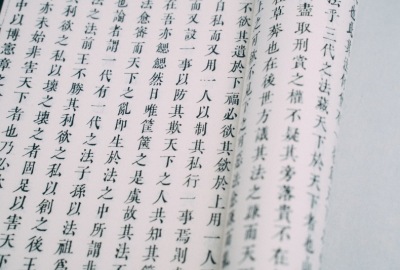 法乎三代之法藏天下於天下者也
盡取刑賞之權不疑其旁落貴不在
在草莽也在後世方議其法之疎而天
不欲其遺於下福必欲其斂於上用一人
自私而又用一人以制其私行一事焉則
而又設一事以防其欺天下之人共知其筐
在吾亦鰓鰓然日唯筐篋之是虞故其法不
法愈密而天下之亂即生於法之中所謂非
也論者謂一代有一代之法子孫以法祖爲
之法前王不勝其利欲之私以創之後王
其利欲之私以壞之壞之者固足以害天下
亦未始非害天下者也乃必
中以博憲章之